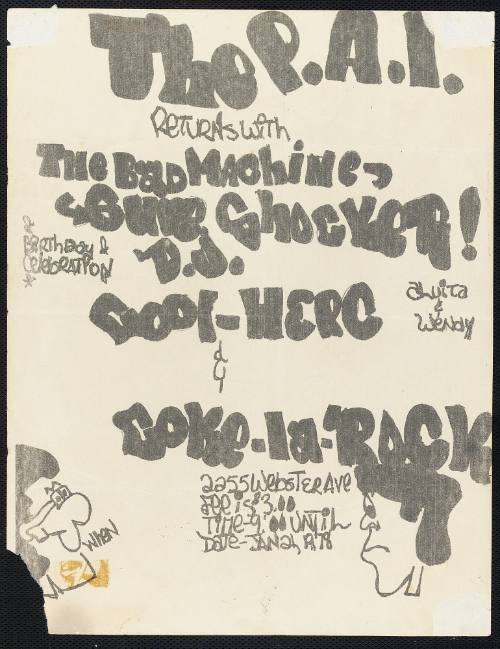 The P.A.L.
Returns with
The Bad Machine
Sure Shocker!
* Birthday &
Celebration *
D.J.
Cool-Herc
&
Wendy
&
Coke-La-Rock
2255 Webster Ave
Fee is $3.00
Time-9:00 Until
Date-Jan
78
When